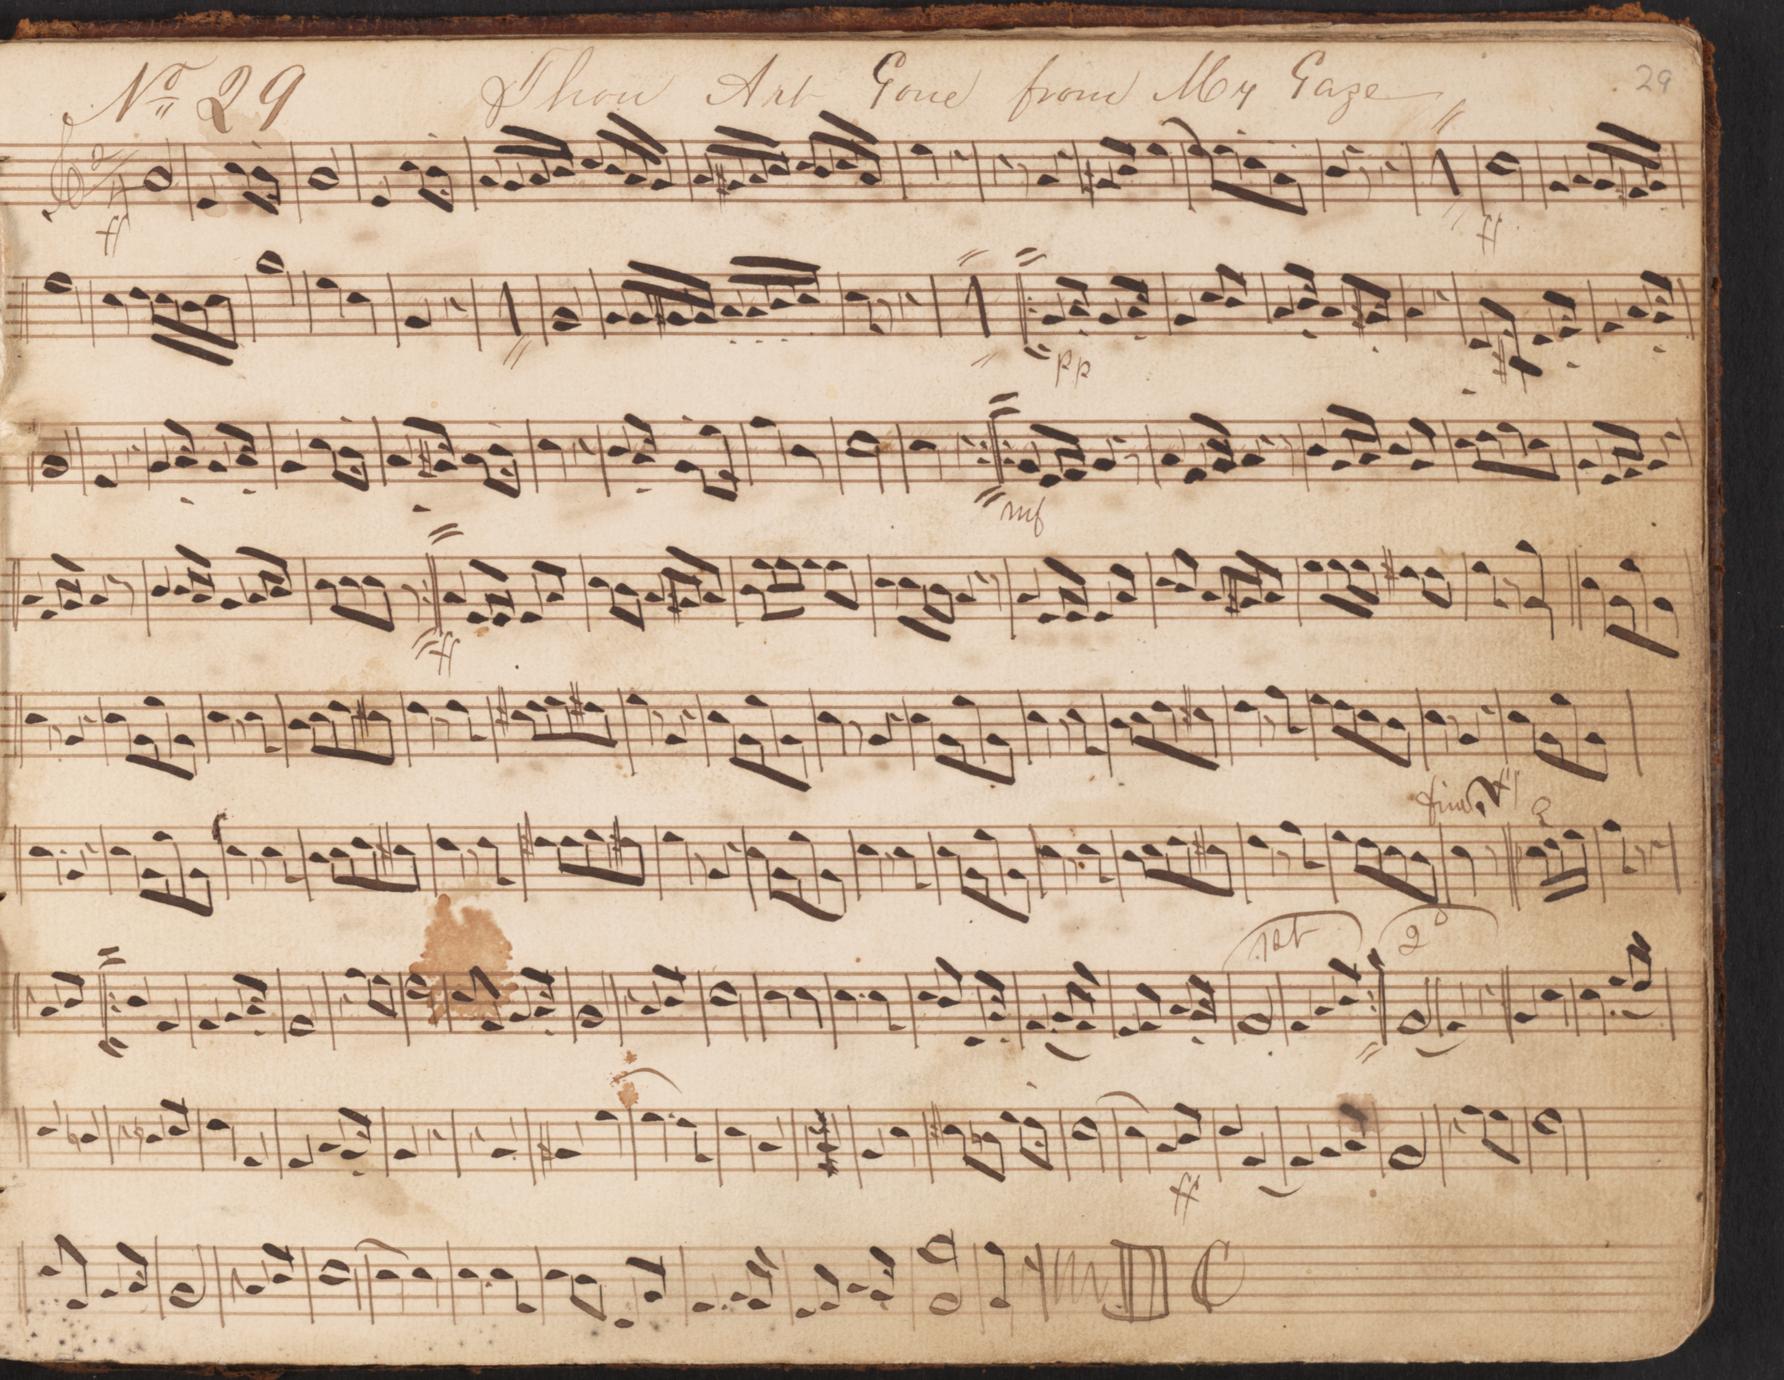 Nº 29 Thou Art Gone from My Gaze 29
2/4
ff ff
pp
mf
ff
1st 2d
ff